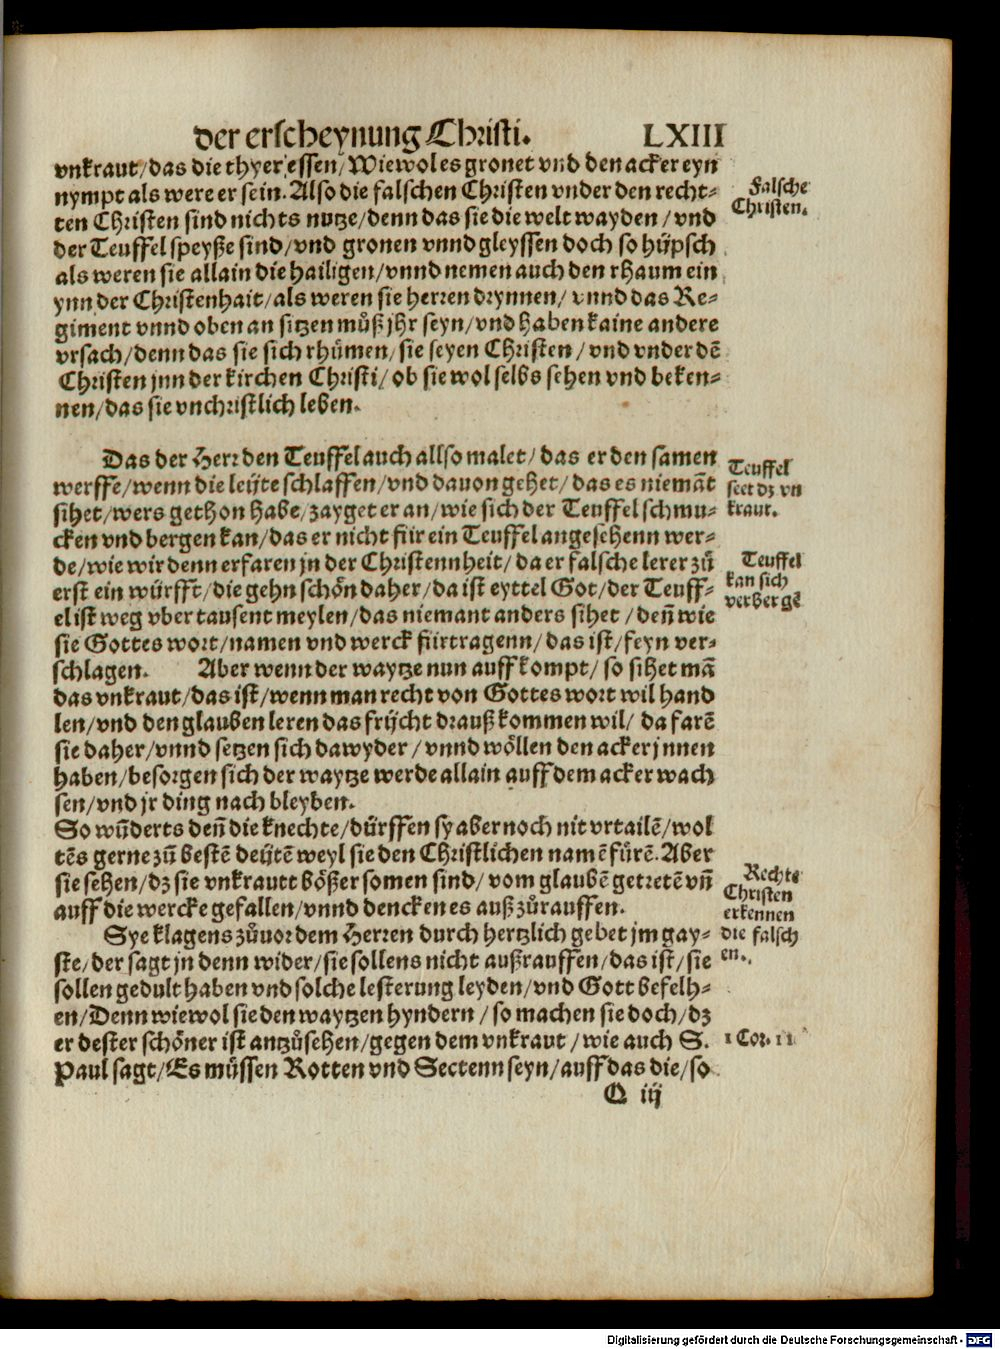 der erscheynung Christi. LXIII
vnkraut/das die thyer essen/Wiewol es gronet vnd den acker eyn
nympt als were er sein. Also die falschen Christen vnder den recht⸗
ten Christen sind nichts nutze/denn das sie die welt wayden/vnd
der Teuffel speyße sind/vnd gronen vnnd gleyssen doch so hüpsch
als weren sie allain die hailigen/vnnd nemen auch den rhaum ein
ynn der Christenhait/als weren sie herren drynnen/vnnd das Re⸗
giment vnnd oben an sitzen můß jhr seyn/vnd haben kaine andere
vrsach/denn das sie sich rhümen/sie seyen Christen/vnd vnder dē
Christen jnn der kirchen Christi/ob sie wol selbs sehen vnd beken⸗
nen/das sie vnchristlich leben.
Falsche
Christen.
Das der Herr den Teuffel auch allso malet/das er den samen
werffe/wenn die leüte schlaffen/vnd dauon gehet/das es niemāt
sihet/wers gethon habe/zayget er an/wie sich der Teuffel schmu⸗
cken vnd bergen kan/das er nicht für ein Teuffel angesehenn wer⸗
de/wie wir denn erfaren jn der Christennheit/da er falsche lerer zů
erst ein würfft/die gehn schön daher/da ist eyttel Got/der Teuff⸗
el ist weg vber tausent meylen/das niemant anders sihet/deñ wie
sie Gottes wort/namen vnd werck fürtragenn/das ist/feyn ver⸗
schlagen. Aber wenn der waytze nun auff kompt/so sihet mā
das vnkraut/das ist/wenn man recht von Gottes wort wil hand
len/vnd den glauben leren das frücht drauß kommen wil/da farē
sie daher/vnnd setzen sich dawyder/vnnd wöllen den acker jnnen
haben/besorgen sich der waytze werde allain auff dem acker wach
sen/vnd jr ding nach bleyben.
Teuffel
seet dz vn
kraut.
Teuffel
kan sich
verbergē
So wūderts deñ die knechte/dürffen sy aber noch nit vrtailē/wol
tēs gerne zū bestē deütē weyl sie den Christlichen namē fürē. Aber
sie sehen/dz sie vnkrautt bößer somen sind/vom glaubē getretē vñ
auff die wercke gefallen/vnnd dencken es auß zůrauffen.
Sye klagens zůuor dem Herren durch hertzlich gebet jm gay⸗
ste/der sagt jn denn wider/sie sollens nicht außrauffen/das ist/sie
sollen gedult haben vnd solche lesterung leyden/vnd Gott befelh⸗
en/Denn wiewol sie den waytzen hyndern/so machen sie doch/dz
er dester schöner ist antzůsehen/gegen dem vnkraut/wie auch S.
Paul sagt/Es müssen Rotten vnd Sectenn seyn/auff das die/so
Rechte
Christen
erkennen
die falsch
en.
1 Cor. 11
Q iij
Digitalisierung gefördert durch die Deutsche Forschungsgemeinschaft - DFG